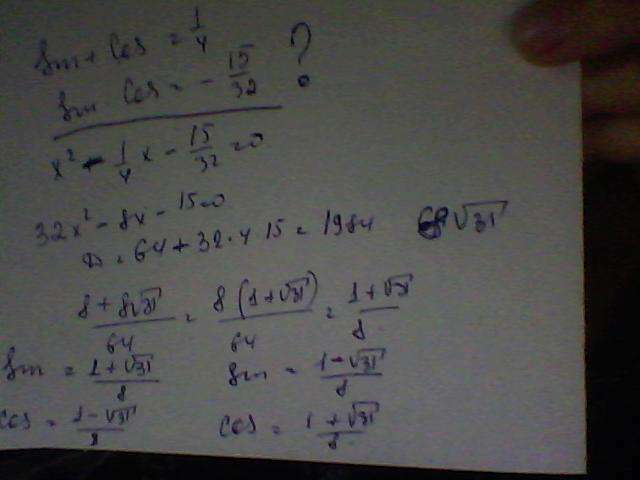 sin + cos = 1/4
sin cos = - 15/32 ?
x² - 1/4 x - 15/32 = 0
32x² - 8x - 15 = 0
D = 64 + 32 · 4 · 15 = 1984 8√31
8 + 8√31 / 64 = 8 (1 + √31) / 64 = 1 + √31 / 8
sin = 1 + √31 / 8 sin = 1 - √31 / 8
cos = 1 - √31 / 8 cos = 1 + √31 / 8